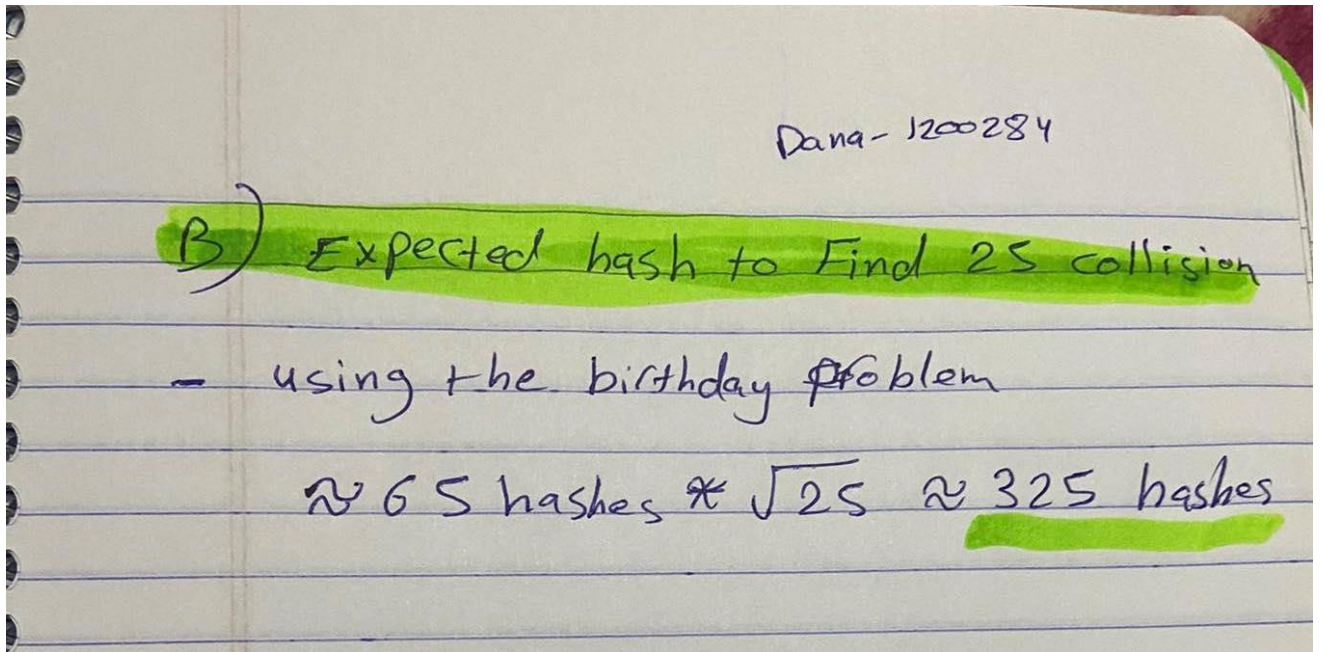 Dana - 1200284
B) Expected hash to Find 25 collision
- using the birthday problem
≈ 65 hashes * √25 ≈ 325 hashes